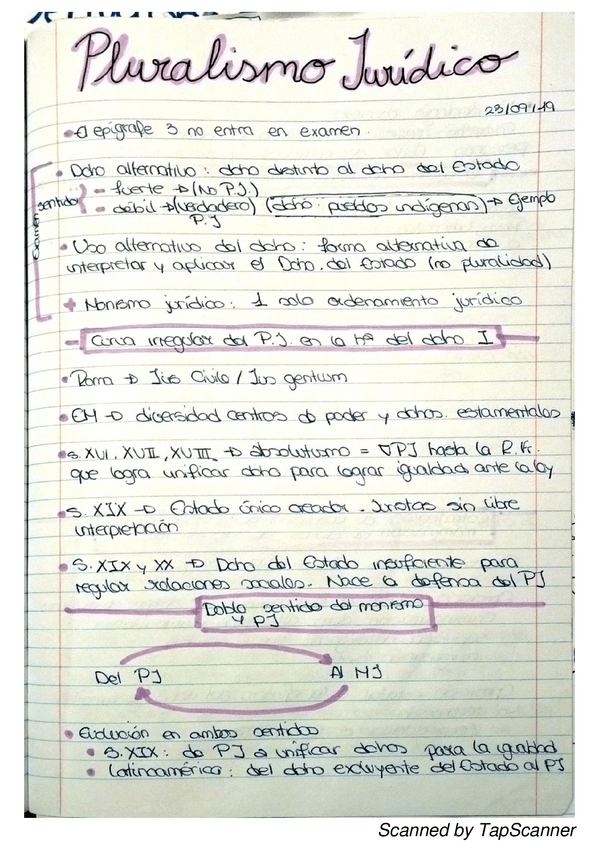 Pluralismo Jurídico
23/09/19
El epígrafe 3 no entra en examen.
Dcho alternativo: dcho distinto al dcho del Estado
sentido
Examen
- fuerte → (No P.J.)
- débil → (verdadero) (dcho. pueblos indígenas) → Ejemplo
P.J
Uso alternativo del dcho: forma alternativa de
interpretar y aplicar el Dcho. del Estado (no pluralidad)
Monismo jurídico: 1 solo ordenamiento jurídico
- Curva irregular del P.J. en la Hª del dcho I
Roma → Ius Civile / Ius gentium
EM → diversidad centros de poder y dchos. estamentales
s. XVI, XVII, XVIII → absolutismo = ∇PJ hasta la R.Fr.
que logra unificar dcho para lograr igualdad ante la ley
S. XIX → Estado único creador. Juristas sin libre
interpretación
S. XIX y XX → Dcho del Estado insuficiente para
regular relaciones sociales. Nace la defensa del PJ
Doble sentido del monismo
y PJ
Del PJ Al MJ
Evolución en ambos sentidos
S. XIX: de PJ a unificar dchos para la igualdad
Latinoamérica: del dcho excluyente del Estado al PJ
Scanned by TapScanner